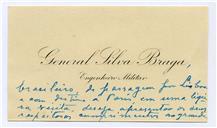 General Silva Braga,
Engenheiro Militar
brasileiro, de passagem por Lisboa
e com destino á Paris, em uma ligeira
visita, deseja apresentar os seus
respeitosos cumprimentos ao grande